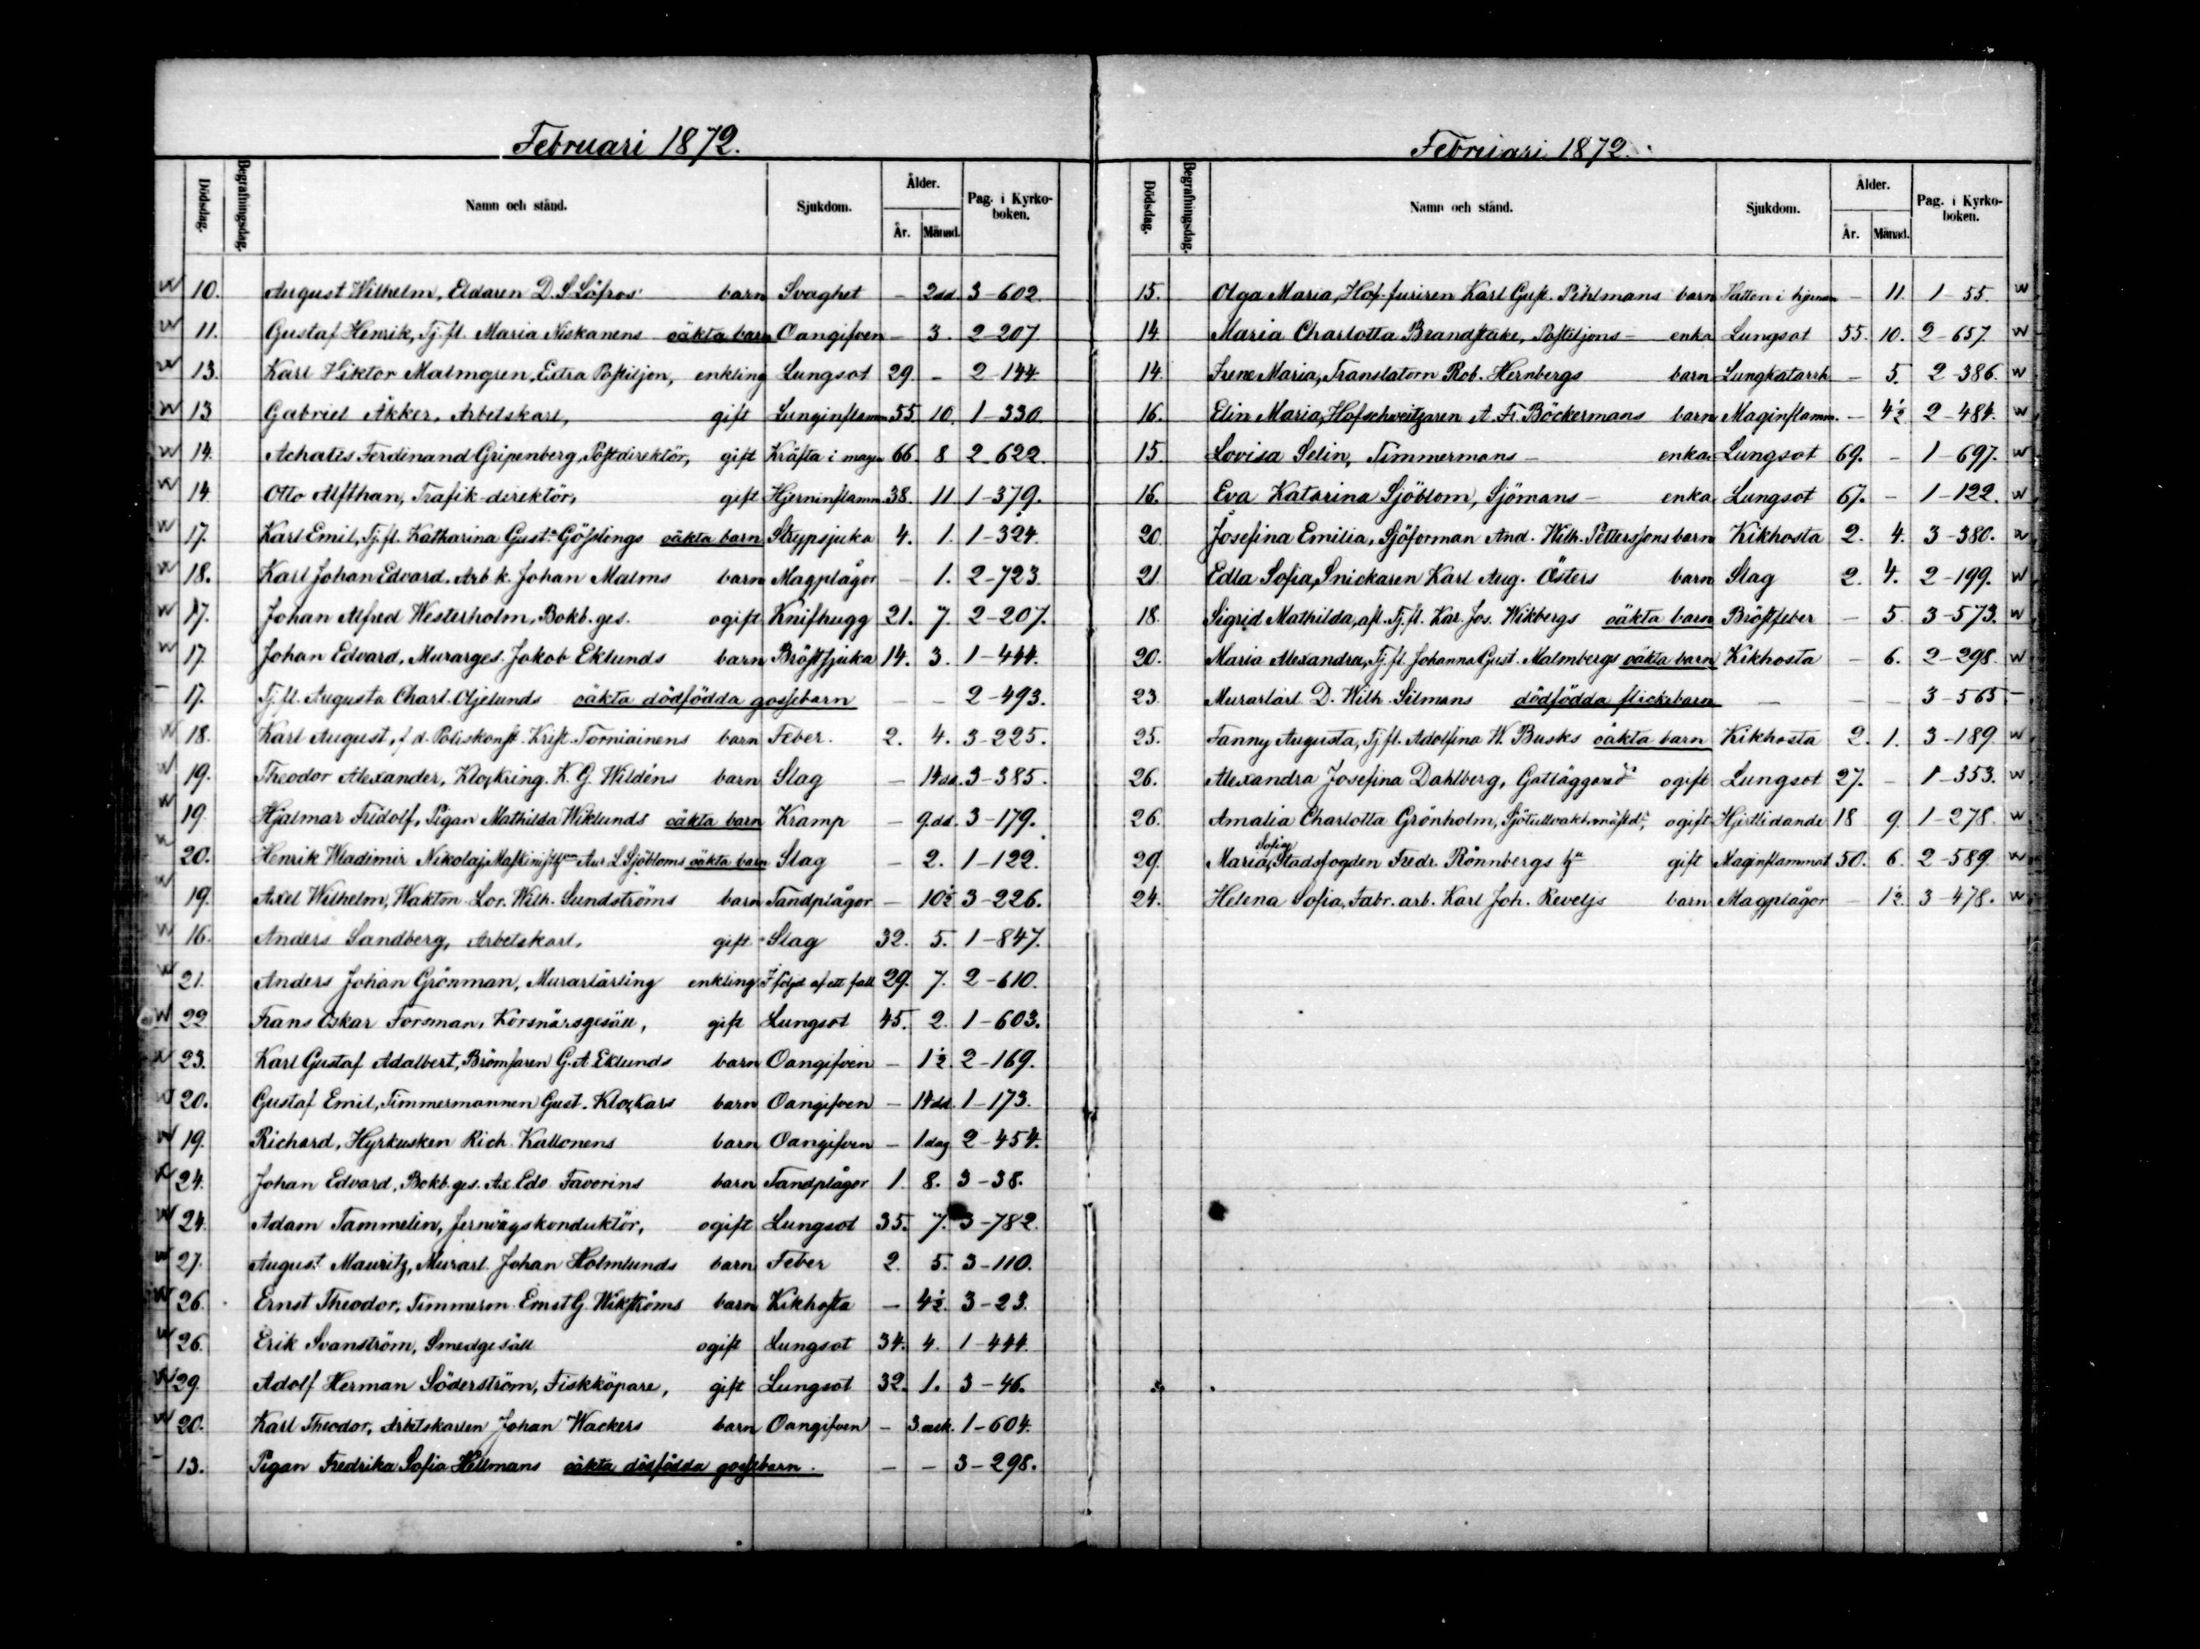 Februari 1872.
Dödsdag. Begrafningsdag. Namn och stånd. Sjukdom. Ålder. År. Månad. Pag. i Kyrkoboken.
10. August Wilhelm, Eldaren D. S. Löfros' barn Svaghet — 2 dd. 3-602.
11. Gustaf Henrik, Tj. fl. Maria Niskanens oäkta barn Oangifven — 3. 2-207.
13. Karl Viktor Malmgren, Extra Postiljon, enkling Lungsot 29. — 2-144.
13 Gabriel Åkker, Arbetskarl, gift Lunginflamm. 55. 10. 1-330.
14. Achates Ferdinand Gripenberg, Postdirektör, gift Kräfta i magen 66. 8 2-622.
14. Otto Alfthan, Trafik-direktör, gift Hjerninflamm. 38. 11 1-379.
17. Karl Emil, Tj. fl. Katharina Gust:a oäkta barn Strypsjuka 4. 1. 1-324.
18. Karl Johan Edvard, Arb. k. Johan Malms barn Magplågor — 1. 2-723.
17. Johan Alfred Westerholm, Bokb. ges. ogift Knifhugg 21. 7. 2-207.
17. Johan Edvard, Murarges. Jakob Eklunds barn Bröstsjuka 14. 3. 1-444.
17. Tj. fl. Augusta Charl. Oljelunds oäkta dödfödda gossebarn — — 2-493.
18. Karl August, f. d. Poliskonst. Krist. Torniainens barn Feber. 2. 4. 3-225.
19. Theodor Alexander, Klockring. K. G. Wildéns barn Slag — 14 dd. 3-385.
19. Hjalmar Fridolf, Pigan Mathilda Wiklunds oäkta barn Kramp — 9. dd. 3-179.
20. Henrik Wladimir Nikolaj, Aur. L. Sjöbloms oäkta barn Slag — 2. 1-122.
19. Axel Wilhelm, Wakton. Lor. Wilh. Sundströms barn Tandplågor — 10½ 3-226.
16. Anders Sandberg, Arbetskarl, gift Slag 32. 5. 1-847.
21. Anders Johan Grönman, Murarlärling enkling I följd af ett fall 29. 7. 2-610.
22. Frans Oskar Forsman, Korsnärsgesäll, gift Lungsot 45. 2. 1-603.
23. Karl Gustaf Adalbert, Bromsaren G. A. Eklunds barn Oangifven — 1½ 2-169.
20. Gustaf Emil, Timmermannen Gust. Klockars barn Oangifven — 14 dd. 1-173.
19. Richard, Hyrkusken Rich. Kallonens barn Oangifven — 1 dag 2-454.
24. Johan Edvard, Bokb. ges. Ax. Edv. Favorins barn Tandplågor 1. 8. 3-38.
24. Adam Tammelin, Jernvägskonduktör, ogift Lungsot 35. 7. 3-782.
27. August Mauritz, Murarl. Johan Holmlunds barn Feber 2. 5. 3-110.
26. Ernst Theodor, Timmerm. Ernst G. Wikströms barn Kikhosta — 4½ 3-23.
26. Erik Svanström, Smedgesäll ogift Lungsot 34. 4. 1-444.
29. Adolf Herman Söderström, Fiskköpare, gift Lungsot 32. 1. 3-46.
20. Karl Theodor, Arbetskarlen Johan Wackers barn Oangifven — 3 veck. 1-604.
13. Pigan Fredrika Sofia Hellmans oäkta dödfödda gossebarn. — — 3-298.
Februari 1872.
Dödsdag. Begrafningsdag. Namn och stånd. Sjukdom. Ålder. År. Månad. Pag. i Kyrkoboken.
15. Olga Maria, Hof-furiren Karl Gust. Pihlmans barn Vatten i hjernan — 11. 1-55.
14. Maria Charlotta Brandstake, Postiljons- enka Lungsot 55. 10. 2-657.
14. Irene Maria, Translatorn Rob. Hernbergs barn Lungkatarrh. — 5. 2-386.
16. Elin Maria, Hofschweitzaren A. Fr. Böckermans barn Maginflamm. — 4½ 2-484.
15. Lovisa Selin, Timmermans- enka Lungsot 69. — 1-697.
16. Eva Katarina Sjöblom, Sjömans- enka Lungsot 67. — 1-122.
20. Josefina Emilia, Sjöforman And. Wilh. Petterssons barn Kikhosta 2. 4. 3-380.
21. Edla Sofia, Snickaren Karl Aug. Östers barn Slag 2. 4. 2-199.
18. Sigrid Mathilda, afl. Tj. fl. Kar. Jos. Wikbergs oäkta barn Bröstfeber — 5. 3-573.
20. Maria Alexandra, Tj. fl. Johanna Gust. Malmbergs oäkta barn Kikhosta — 6. 2-298.
23. Murarlärl. D. Wilh. Silmans dödfödda flickebarn — — — 3-565
25. Fanny Augusta, Tj. fl. Adolfina W. Busks oäkta barn Kikhosta 2. 1. 3-189.
26. Alexandra Josefina Dahlberg, ogift Lungsot 27. — 1-353.
26. Amalia Charlotta Grönholm, Sjötullvaktmästd:r, ogift Hjertlidande 18 9. 1-278.
29. Maria Sofia, Stadsfogden Fredr. Rönnbergs h:u gift Maginflammat. 50. 6. 2-589.
24. Helena Sofia, Fabr. arb. Karl Joh. Reveljs barn Magplågor — 1½ 3-478.